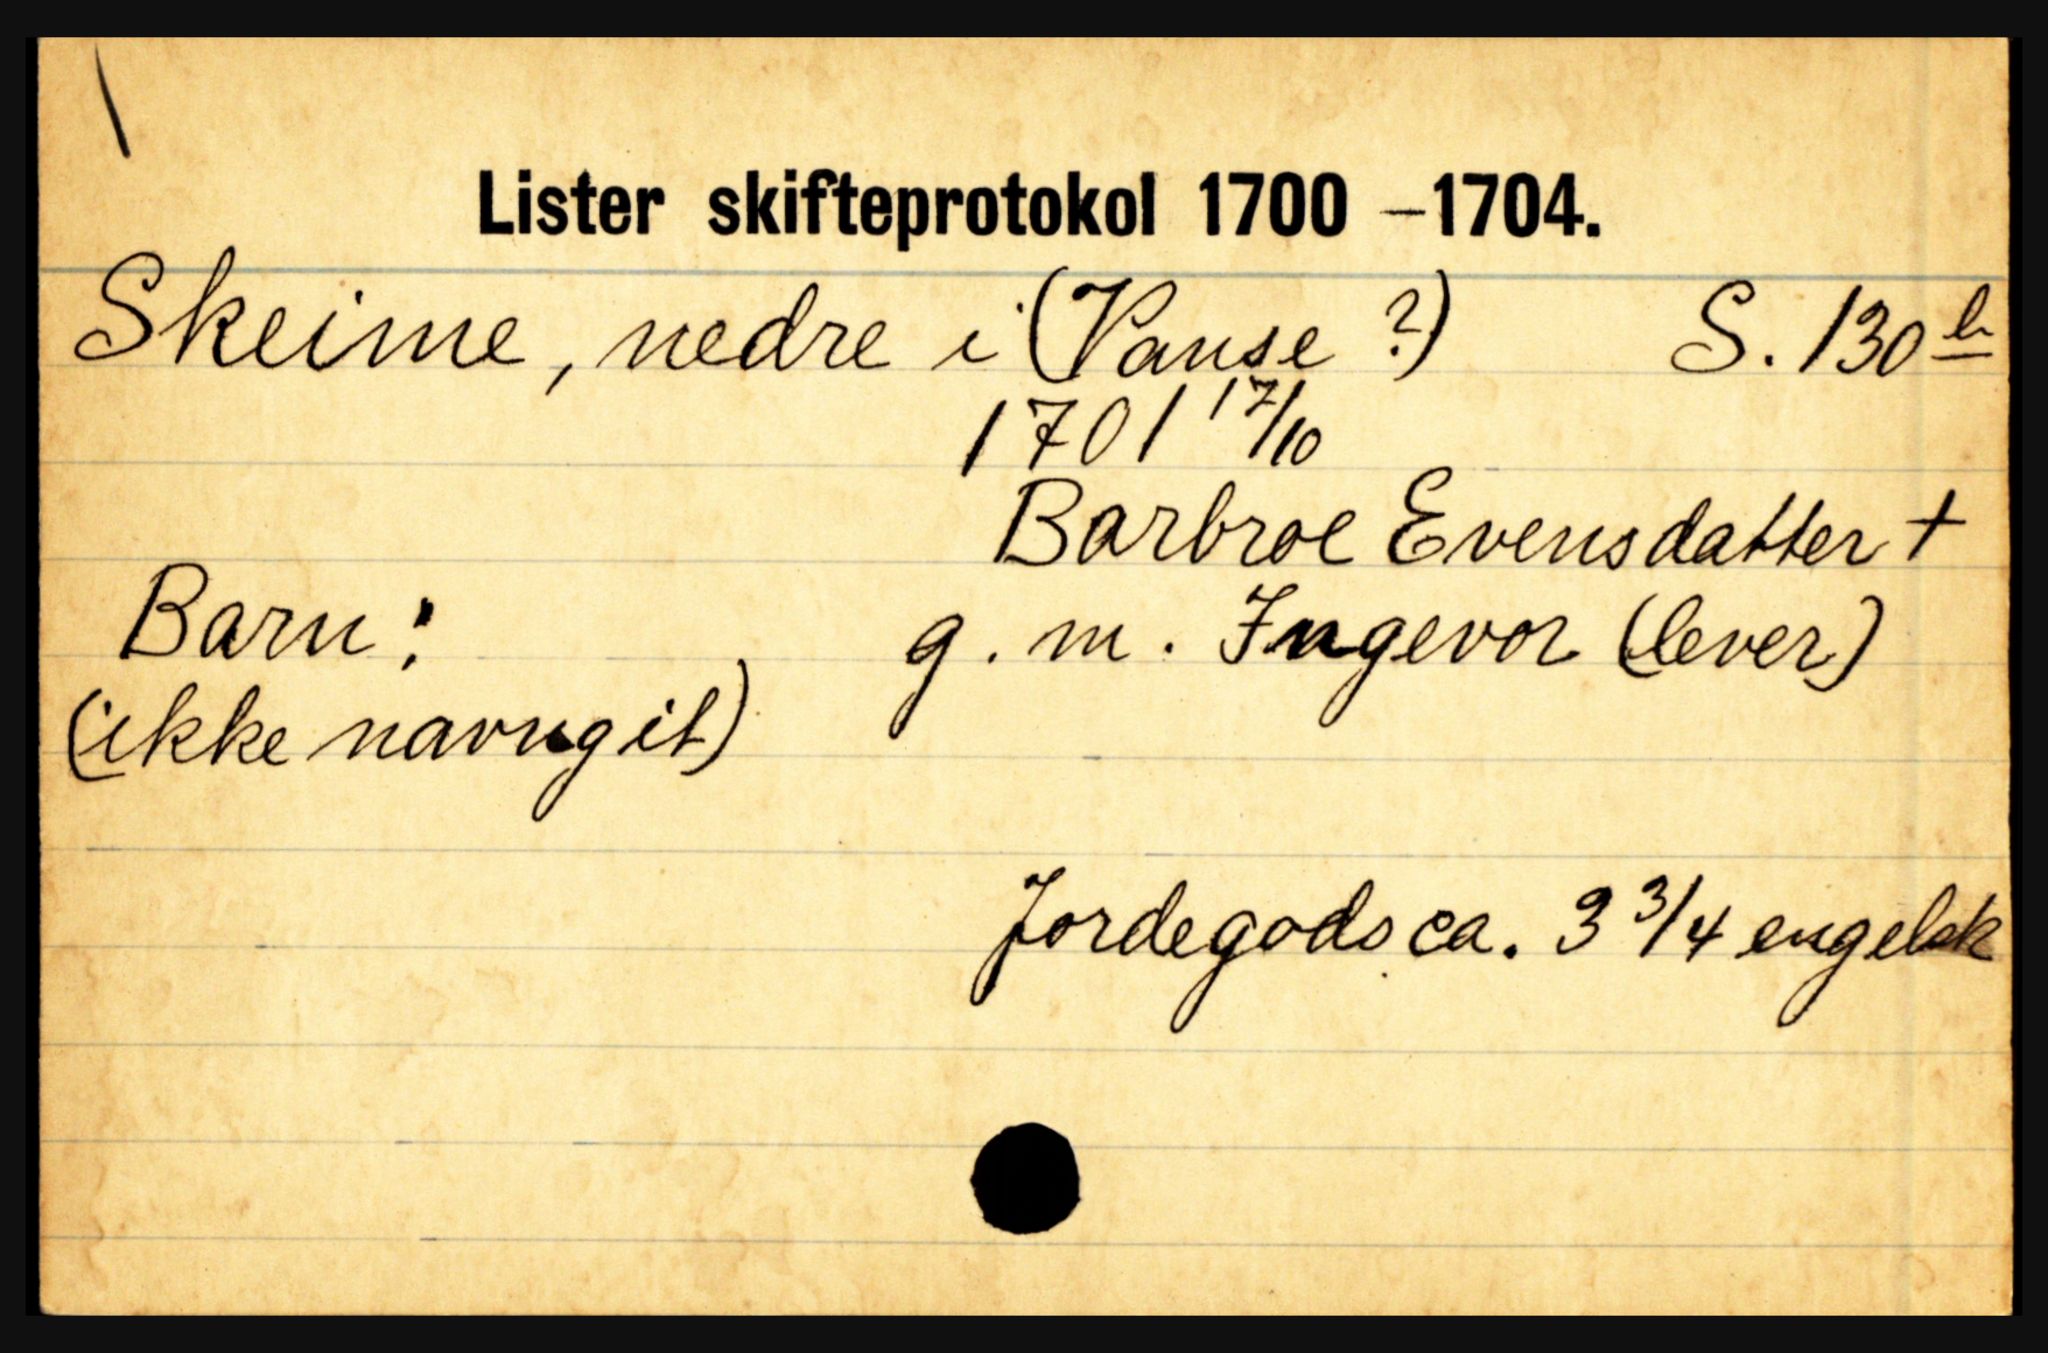 Lister skifteprotokol 1700 – 1704.
Skeime, nedre i (Vanse ?) S. 130 b
1701 17/10
Barbroe Evensdatter +
Barn: g. m. Ingevor (lever)
(ikke navngit)
Jordegods ca. 3 3/4 engelsk